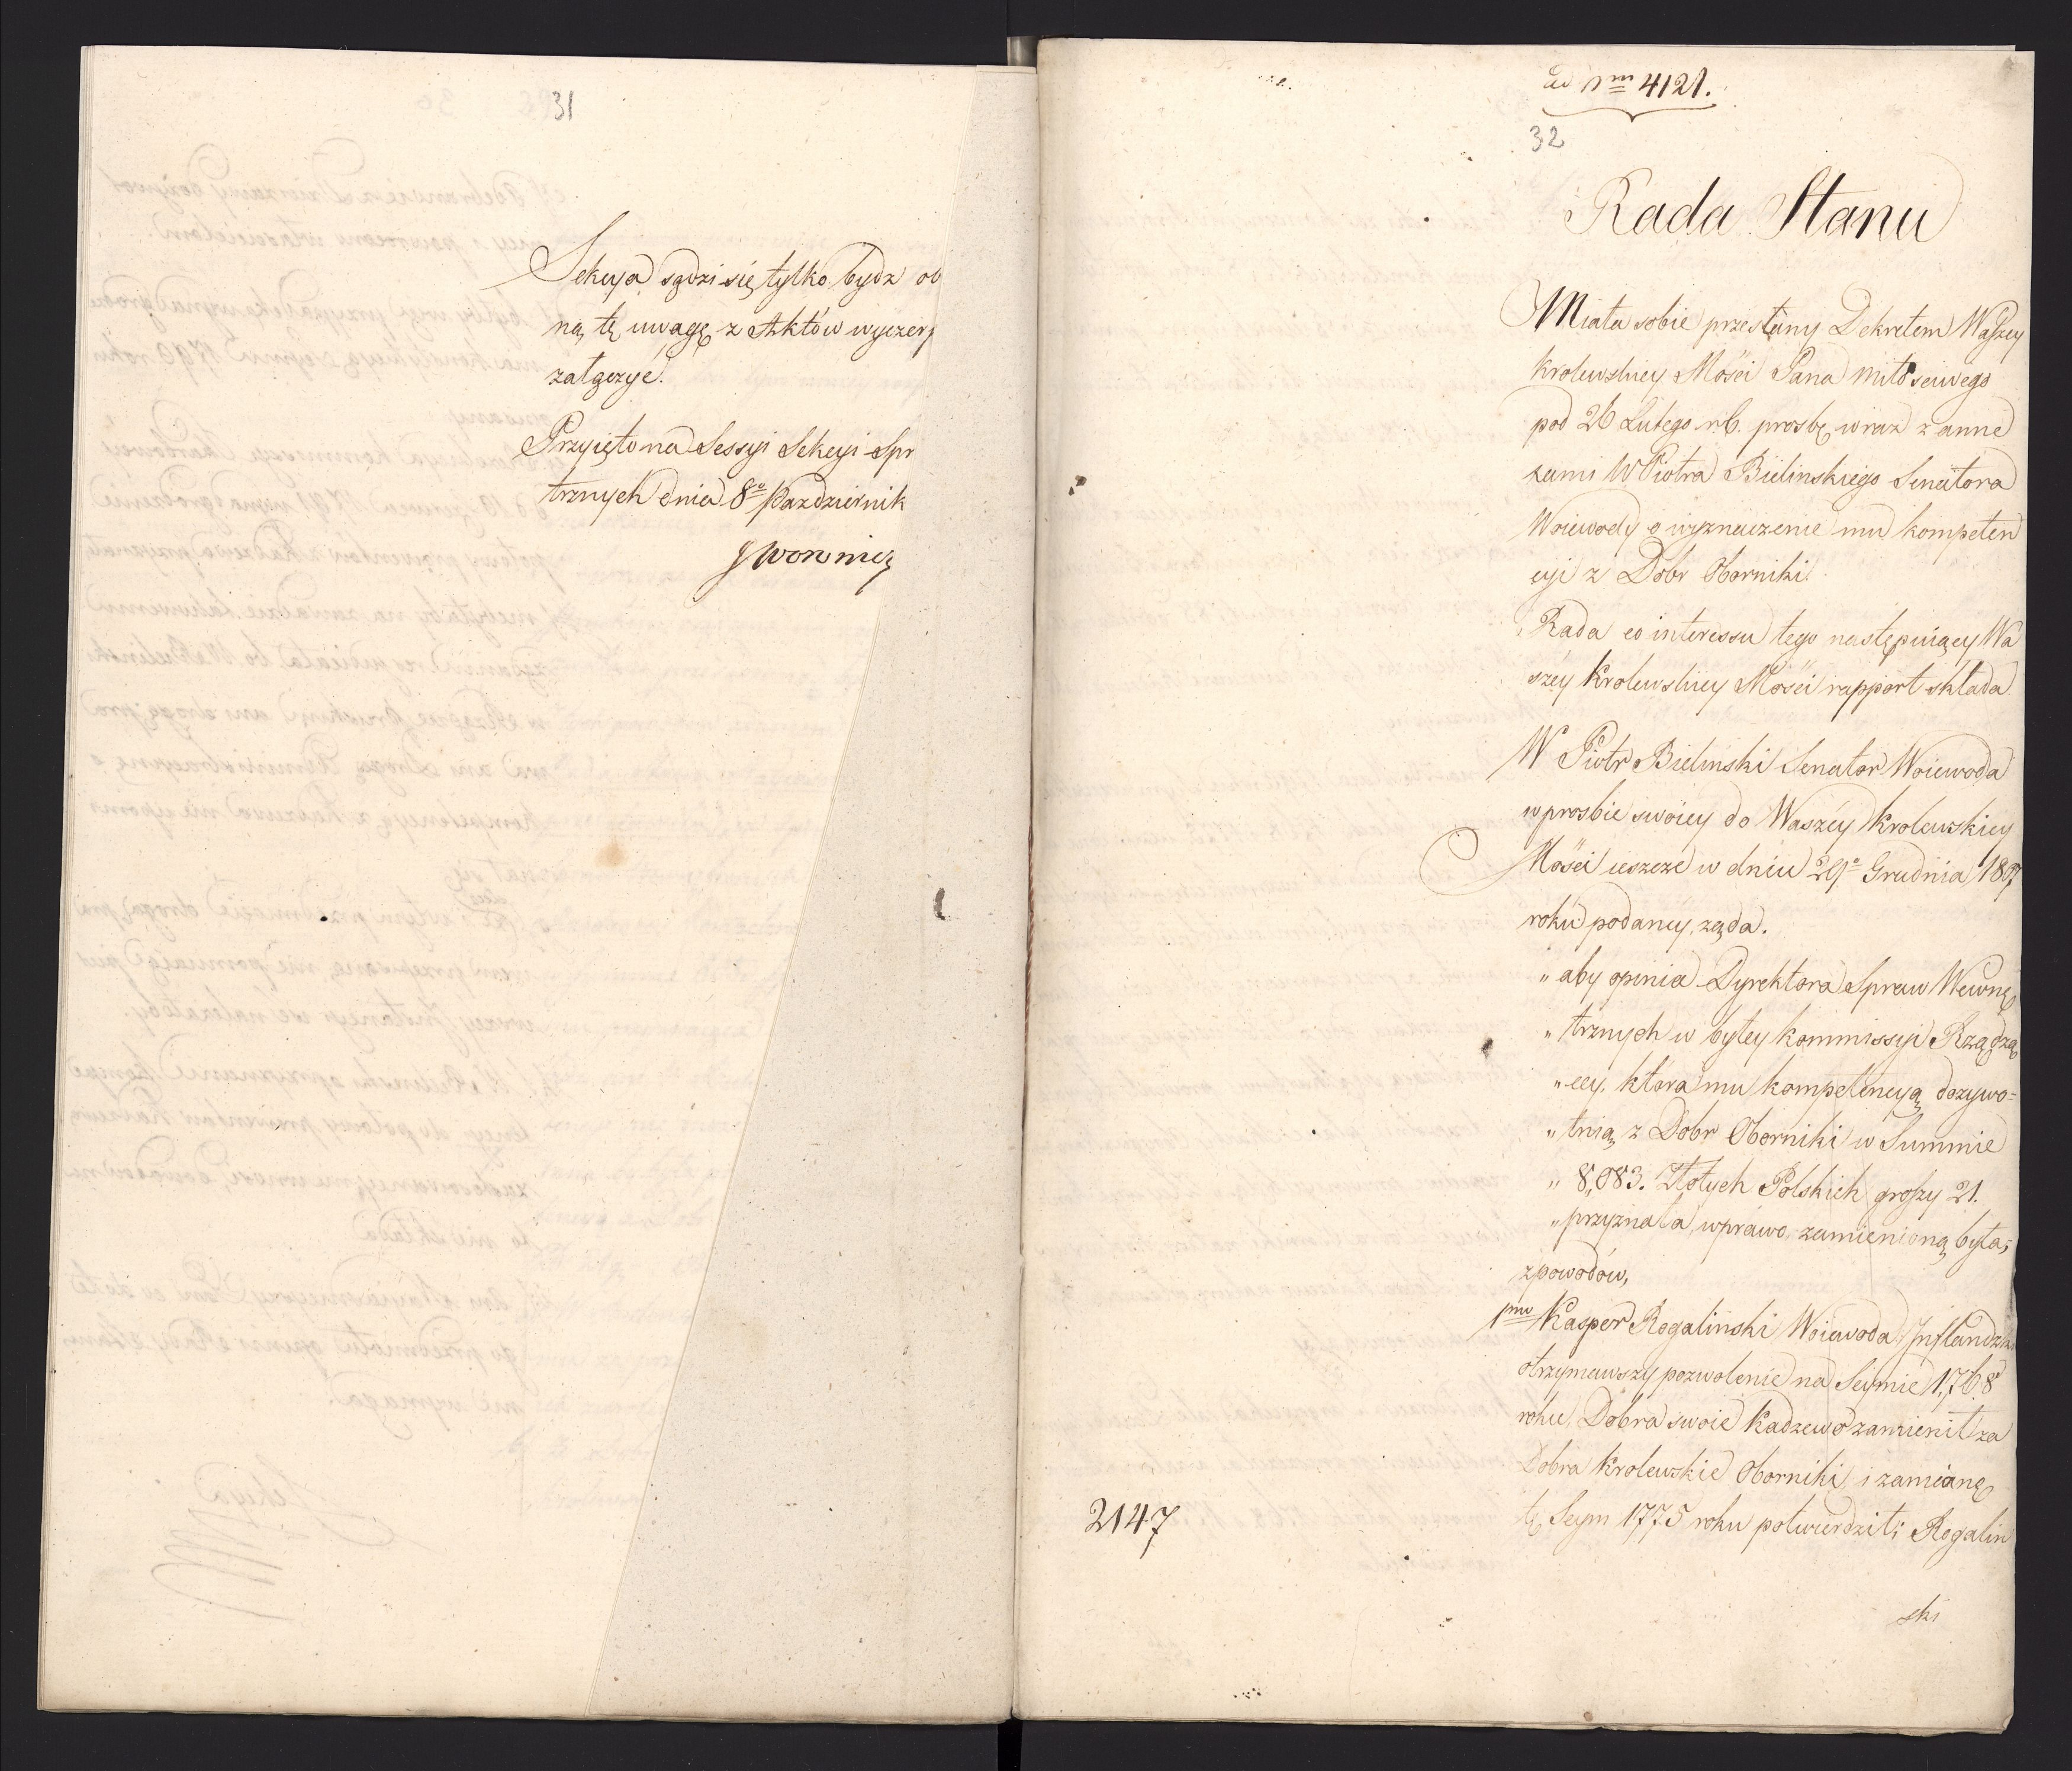 31
Sekcya sądzi się tylko bydz ob
ną tę uwagę z Aktów wyczerp
załączyć.
Przyięto na Sessyi Sekcyi Spr
trznych dnia 8º Pazdziernik
J Woronicz
ad Nrm 4121.
32
Rada Stanu
Miała sobie przesłany Dekretem Waszey
Krolewskiey Mości Pana Miłościwego
pod 26 Lutego r.b. prosbę wraz z anne
xami W Piotra Bielinskiego Senatora
Woiewody o wyznaczenie mu kompeten
cyi z Dobr Oborniki.
Rada co interessu tego następuiący Wa
szey Krolewskiey Mości rapport składa.
W Piotr Bielinski Senator Woiewoda
w prosbie swoiey do Waszey Krolewskiey
Mości ieszcze w dniu 29º Grudnia 1807
roku podaney, ząda.
„ aby opinia Dyrektora Spraw Wewnę
„ trznych w byłey Kommissyi Rządzą
„ cey, ktora mu kompetencyą dozywo=
„ tnią z Dobr Oborniki w Summie
„ 8,083. Złotych Polskich groszy 21.
„ przyznała, w prawo zamienioną była;
z powodów,
1mo Kasper Rogaliński Woiewoda Inflandzki
otrzymawszy pozwolenie na Seymie 1768
roku, Dobra swoie Kadzewo zamienił za
Dobra Krolewskie Oborniki, i zamianę
tę Seym 1775 roku potwierdził; Rogalin
ski
2147